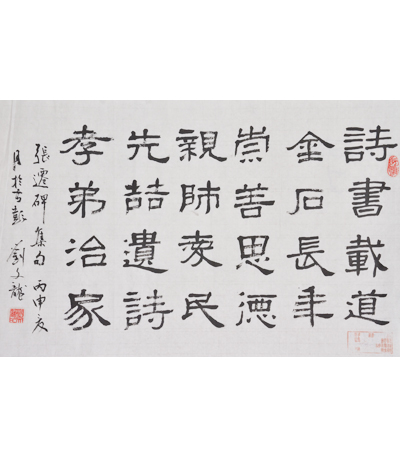 詩書載道
金石長年
崇善思德
親師愛民
先喆遺詩
孝弟治家
張遷碑集句 丙申夏
月於古彭 劉文龍